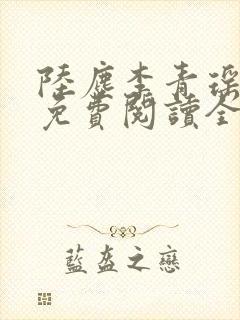 陸塵李青瑤
免費閱讀全
藍盔之戀